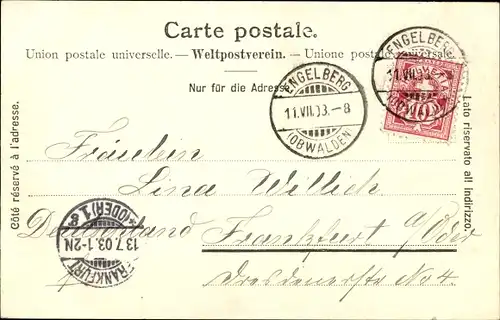 Carte postale.
Union postale universelle. — Weltpostverein. — Unione postale universale.
Nur für die Adresse
ENGELBERG
11.VII.03.–8
(OBWALDEN)
ENGELBERG
11.VII.03.
Côté réservé à l'adresse.
Lato riservato all indirizzo.
Fräulein
Lina Willich
Deutschland Frankfurt a/Oder
Dresdenerstr No 4.
FRANKFURT
13.7.03.1-2N
(ODER) 1